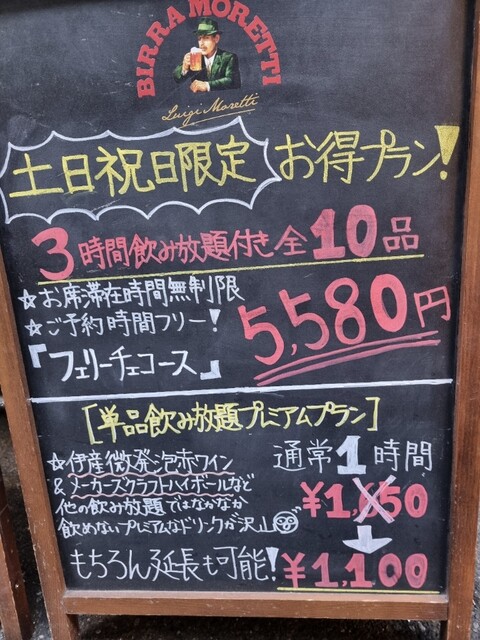 BIRRA MORETTI
Luigi Moretti
土日祝日限定 お得プラン!
3時間飲み放題付き全10品
☆お席滞在時間無制限
☆ご予約時間フリー!
5,580円
「フェリーチェコース」
[単品飲み放題プレミアムプラン]
☆伊産微発泡赤ワイン
&メーカーズクラフトハイボールなど
他の飲み放題ではなかなか
飲めないプレミアムなドリンクが沢山
通常1時間
¥1,650
¥1,100
もちろん延長も可能!